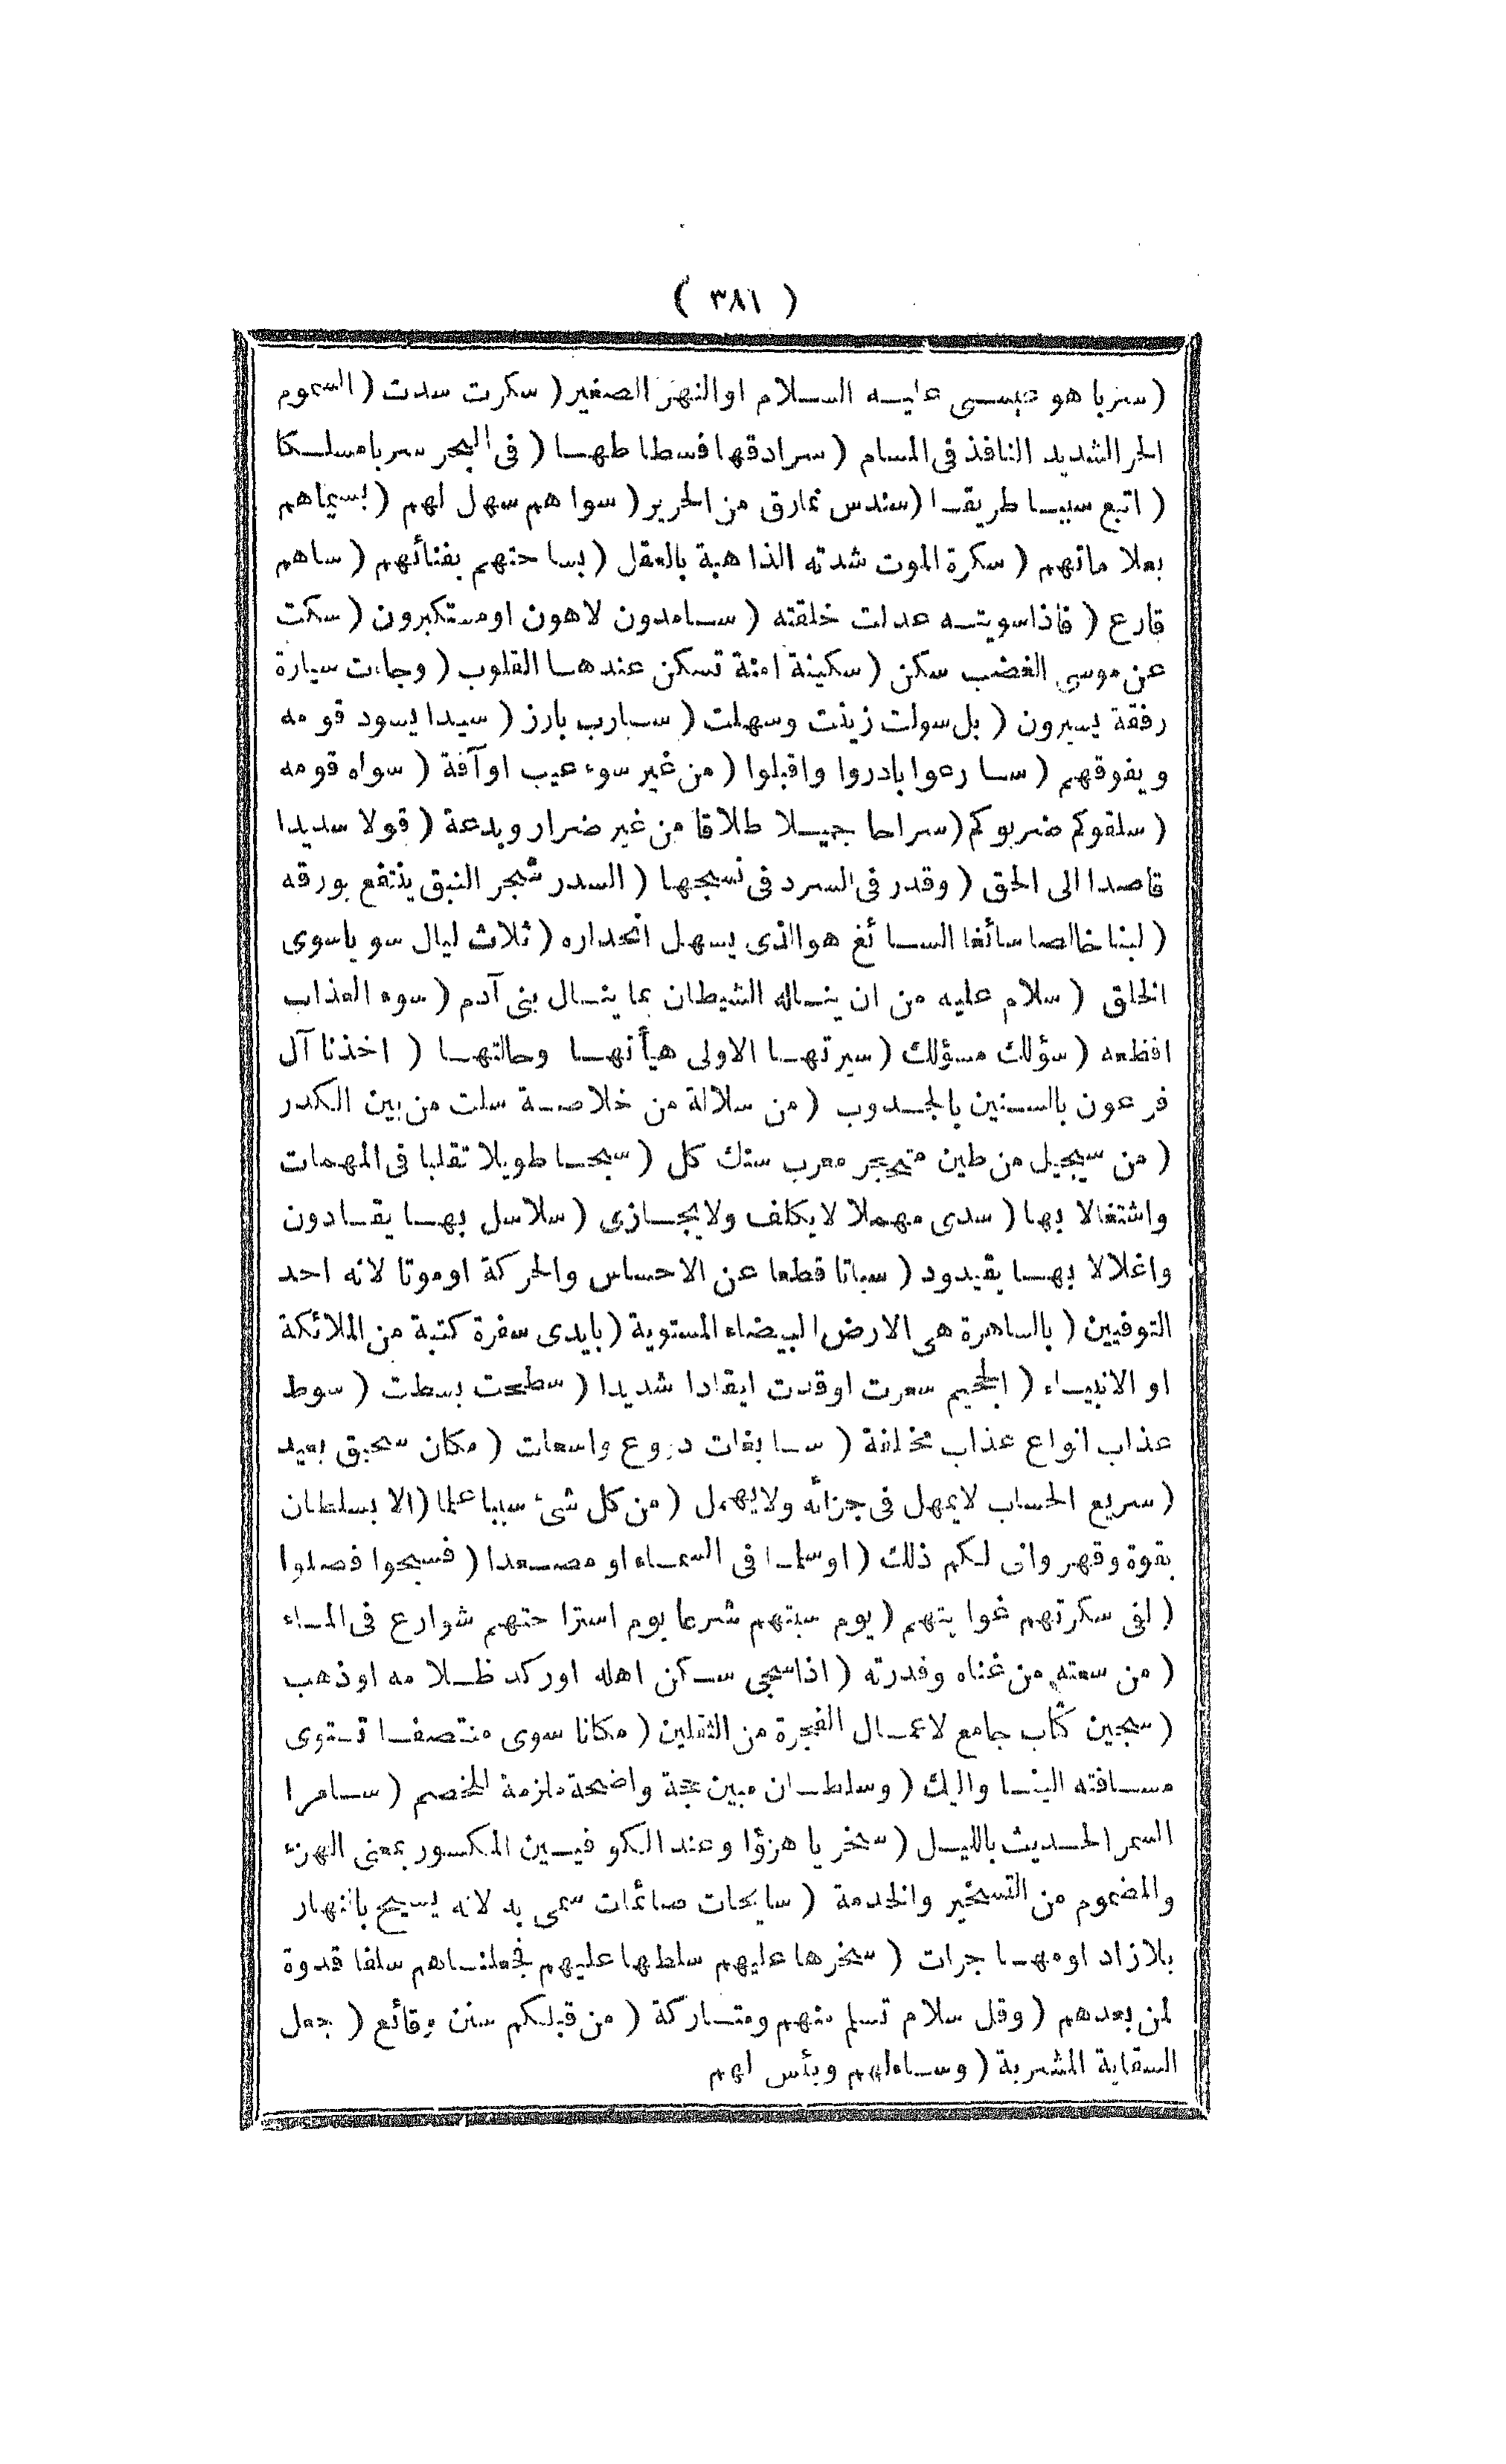 ( ٣٨١ )
( سريا هو عيسى عليه السلام او النهر الصغير ( سكرت سدت ( السموم
الحر الشديد النافذ فى المسام ( سرادقها فسطاطها ( فى البحر سربا مسلكا
( اتبع سببا طريقا ( سندس نمارق من الحرير ( سواهم سهل لهم ( بسيماهم
بعلاماتهم ( سكرة الموت شدته الذاهبة بالعقل ( بساحتهم بفنائهم ( ساهم
قارع ( فاذا سويته عدلت خلقته ( سامدون لاهون او مستكبرون ( سكت
عن موسى الغضب سكن ( سكينة امنة تسكن عندها القلوب ( وجاءت سيارة
رفقة يسيرون ( بل سولت زينت وسهلت ( سارب بارز ( سيدا يسود قومه
ويفوقهم ( سارعوا بادروا واقبلوا ( من غير سوء عيب او آفة ( سواه قومه
( سلقوكم ضربوكم ( سراحا جميلا طلاقا من غير ضرار وبدعة ( قولا سديدا
قاصدا الى الحق ( وقدر فى السرد فى نسجها ( السدر شجر النبق ينتفع بورقه
( لبنا خالصا سائغا السائغ هو الذى يسهل انحداره ( ثلاث ليال سويا سوى
الخلق ( سلام عليه من ان يناله الشيطان بما ينال بنى آدم ( سوء العذاب
افظعه ( سؤلك مسؤلك ( سيرتها الاولى هيأتها وحالتها ( اخذنا آل
فرعون بالسنين بالجدوب ( من سلالة من خلاصة سلت من بين الكدر
( من سجيل من طين متحجر معرب سنك كل ( سبحا طويلا تقلبا فى المهمات
واشتغالا بها ( سدى مهملا لا يكلف ولا يجازى ( سلاسل بها يقادون
واغلالا بها يقيدود ( سباتا قطعا عن الاحساس والحركة او موتا لانه احد
التوفيين ( بالساهرة هى الارض البيضاء المستوية ( بايدى سفرة كتبة من الملائكة
او الانبياء ( الجحيم سعرت اوقدت ايقادا شديدا ( سطحت بسطت ( سوط
عذاب انواع عذاب مختلفة ( سابغات دروع واسعات ( مكان سحيق بعيد
( سريع الحساب لايمهل فى جزائه ولايهمل ( من كل شئ سببا علما ( الا بسلطان
بقوة وقهر وانى لكم ذلك ( او سلما فى السماء او مصعدا ( فسبحوا فصلوا
( لفى سكرتهم غوايتهم ( يوم سبتهم شرعا يوم استراحتهم شوارع فى الماء
( من سعته من غناه وقدرته ( اذا سجى سكن اهله او ركد ظلامه او ذهب
( سجين كتاب جامع لاعمال الفجرة من الثقلين ( مكانا سوى منتصفا تستوى
مسافته الينا واليك ( وسلطان مبين حجة واضحة ملزمة للخصم ( سامرا
السمر الحديث بالليل ( سخريا هزؤا وعند الكوفيين المكسور بمعنى الهزء
والمضموم من التسخير والخدمة ( سايحات صائمات سمى به لانه يسيح بالنهار
بلا زاد او مهاجرات ( سخرها عليهم سلطها عليهم فجعلناهم سلفا قدوة
لمن بعدهم ( وقل سلام تسلم منهم ومتاركة ( من قبلكم سنن وقائع ( جعل
السقاية المشربة ( وساء لهم وبأس لهم